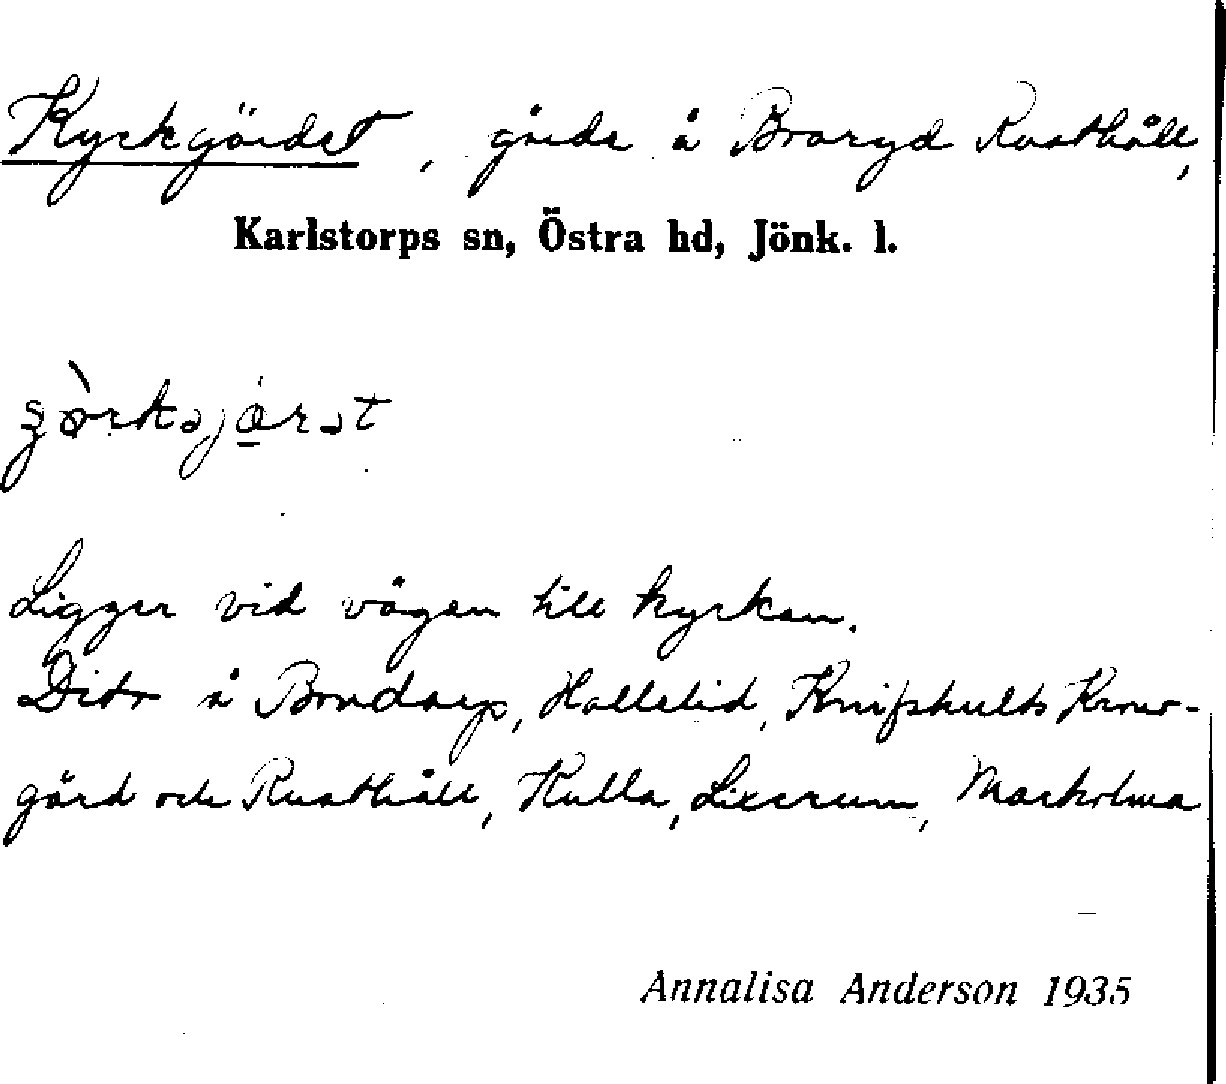 Kyrkgärdet, gärde å Braryd Rusthåll,
Karlstorps sn, Östra hd, Jönk. l.
Ligger vid vägen till kyrkan.
Dito å Brudarp, Hallelid, Knifshults Kron-
gård och Rusthåll, Kulla, Lixerum, Markolma
Annalisa Anderson 1935